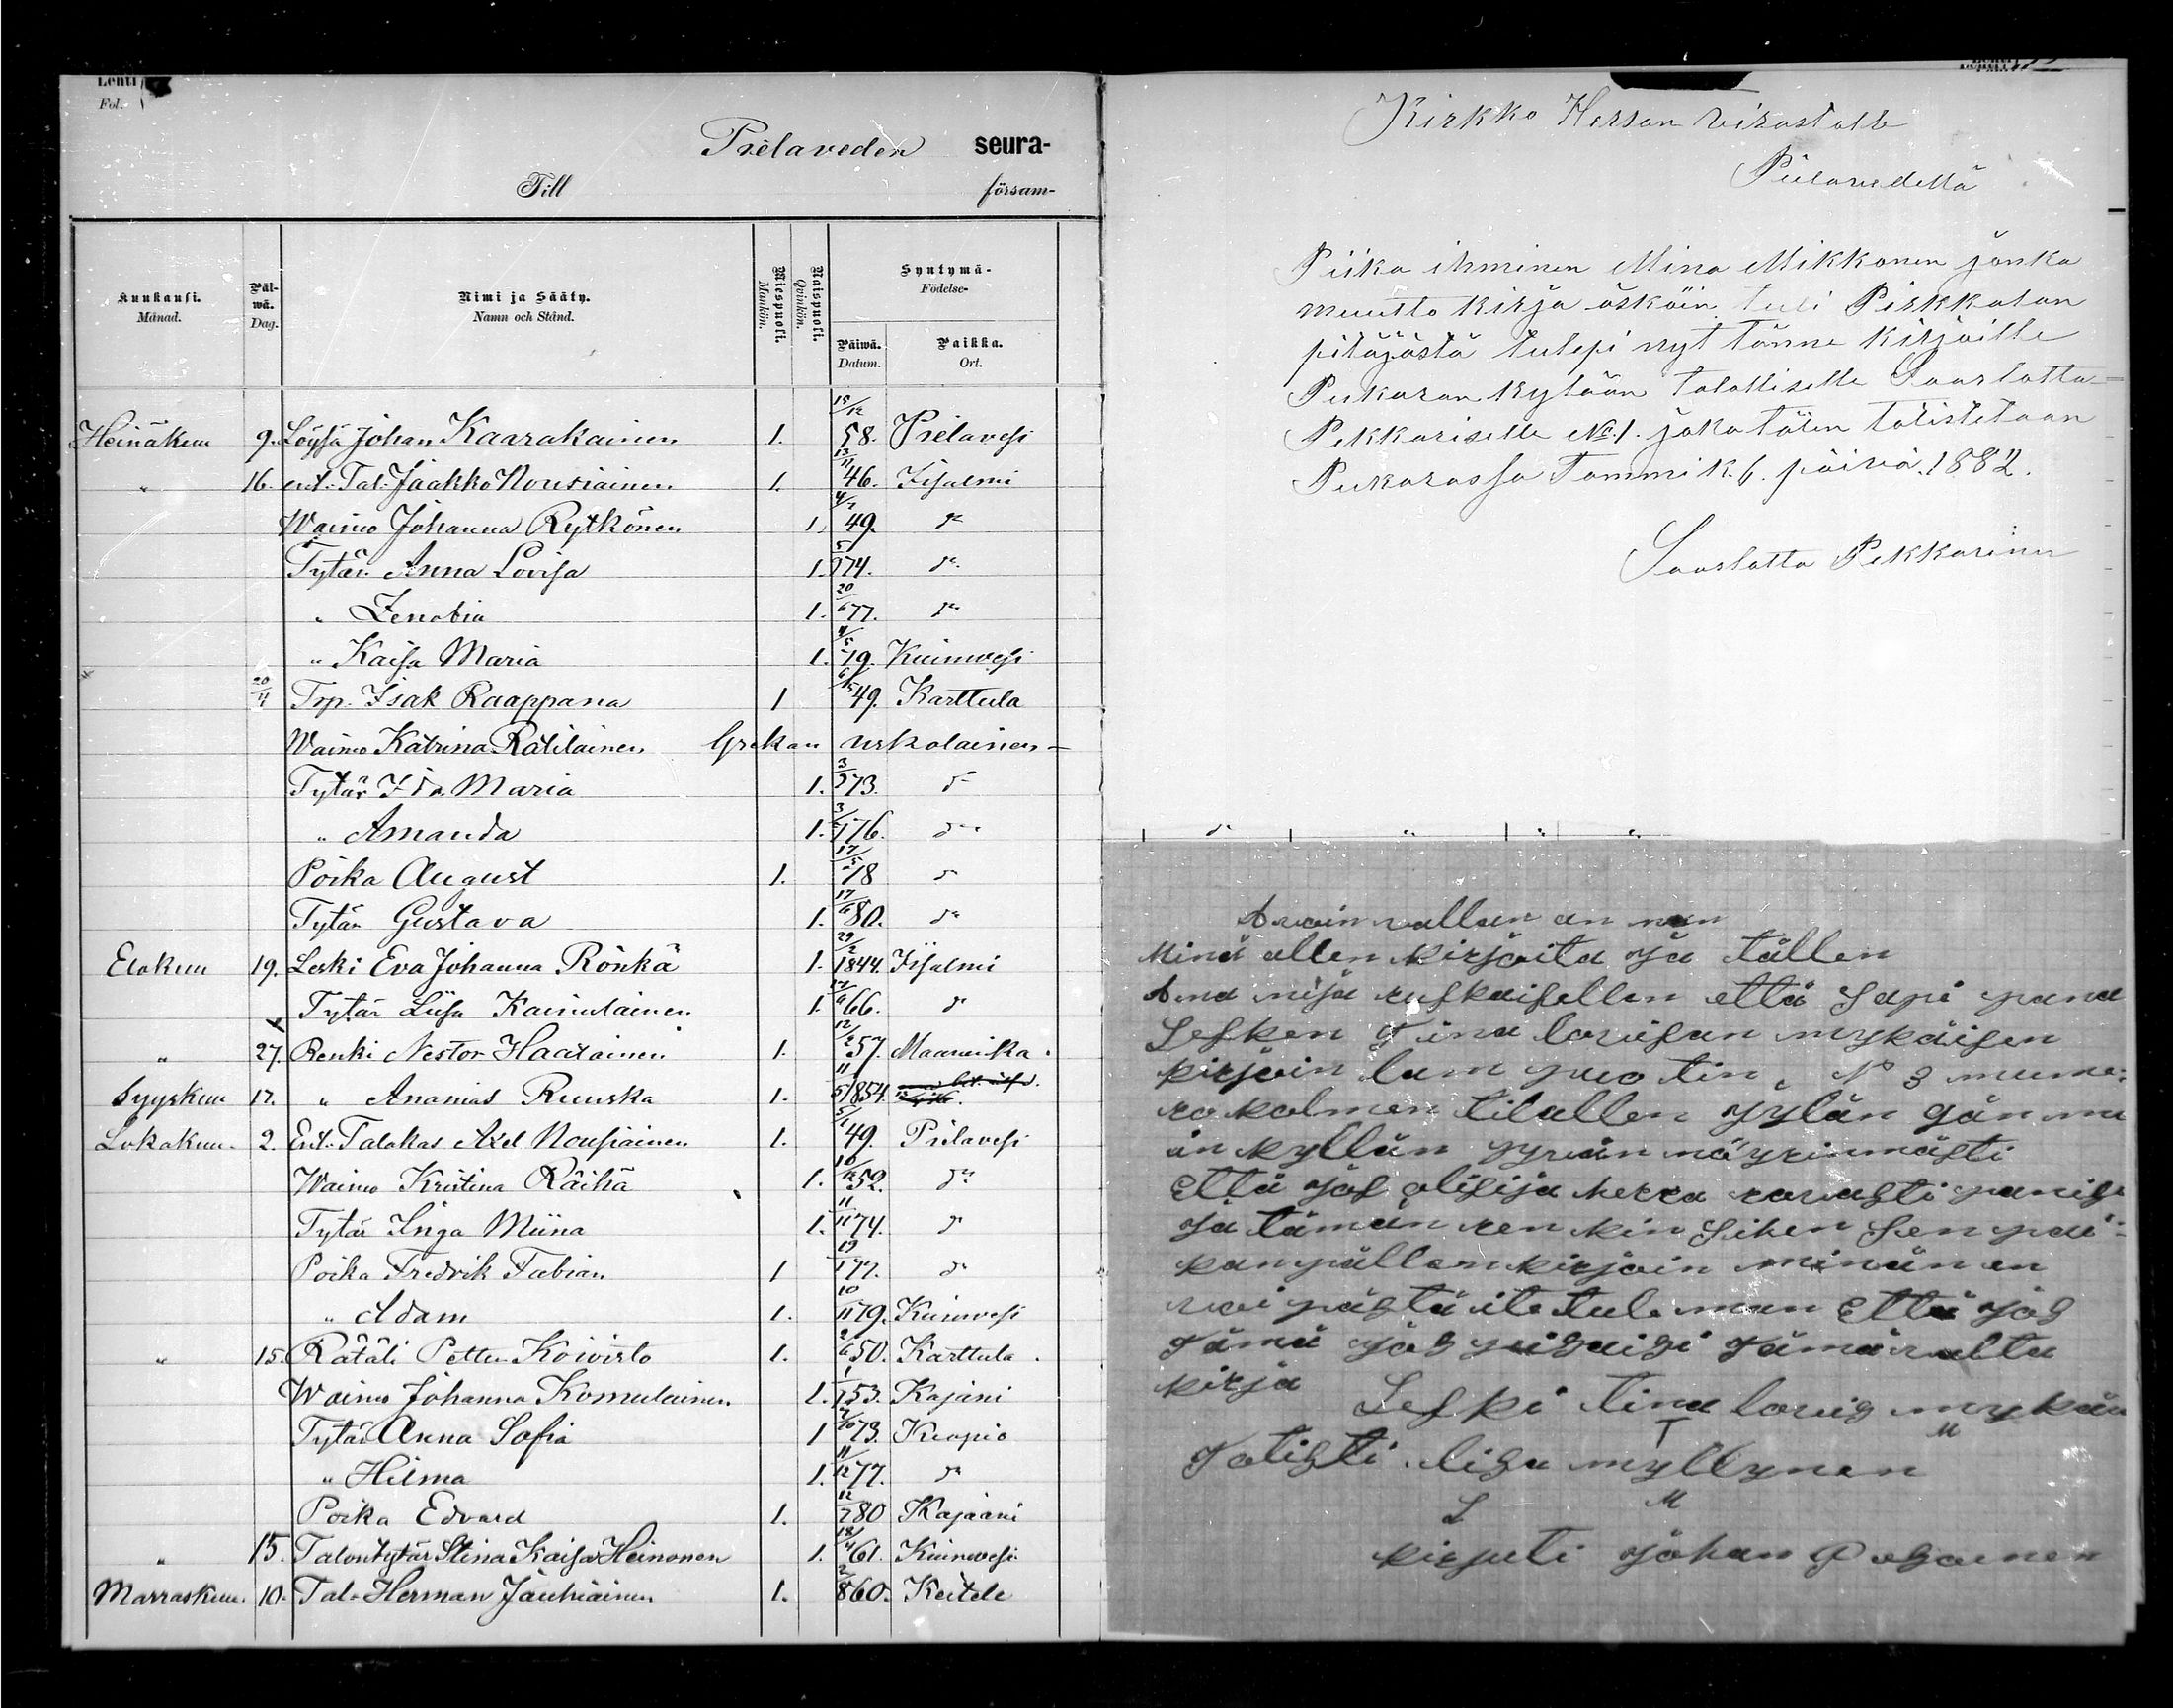 Lenti
Fol.
Pielaveden seura-
Till försam-
Kuukausi. Månad.
Päi-wä. Dag.
Nimi ja Sääty. Namn och Stånd.
Miespuoli. Mankön.
Naispuoli. Qvinkön.
Syntymä- Födelse-
Päiwä. Datum.
Paikka. Ort.
Heinäkuu 9. Löysä Johan Kaarakainen 1. 15/12 58. Pielavesi
" 16. ent. Tal. Jaakko Nousiainen 1. 13/11 46. Iisalmi
Waimo Johanna Rytkönen 1. 4/7 49. do
Tytär Anna Lovisa 1. 74. do
" Zenobia 1. 20/6 77. do
" Kaisa Maria 1. 4/5 79. Kiuruvesi
20/11 Trp. Isak Raappana 1 49. Karttula
Waimo Katrina Rätiläinen Grekan uskolainen
Tytär Ida Maria 1. 73. do
" Amanda 1. 76. do
Poika August 1. 17/5 78 do
Tytär Gustava 1. 17/6 80. do
Elokuu 19. Leski Eva Johanna Rönkä 1. 29/2 1844. Iisalmi
Tytär Liisa Kainulainen 1. 17/6 66. do
" 27. Renki Nestor Haatainen 1. 12/2 57. Maaninka.
Syyskuu 17. " Ananias Ruuska 1. 11/5 1854.
Lokakuu. 2. Ent. Talokas Axel Nousiainen 1. 5/1 49. Pielavesi
Waimo Kristina Räihä 1. 10/12 52. do
Tytär Inga Miina 1. 11/11 74. do
Poika Fredrik Fabian 1 19/1 77. do
" Adam 1. 10/11 79. Kiuruvesi
" 15. Räätäli Petter Koivisto 1. 2/6 50. Karttula.
Waimo Johanna Komulainen 1. 53. Kajani
Tytär Anna Sofia 1 73. Kuopio
" Hilma 1. 11/12 77. do
Poika Edvard 1. 12/7 80 Kajaani
" 15. Talontytär Stina Kaisa Heinonen 1. 18/4 61. Kiuruvesi
Marraskuu. 10. Tal. Herman Jauhiainen 1. 2/8 60. Keitele
Kirkko Herran Virastolle
Pielavedellä
Piika ihminen Mina Mikkonen jonka
muutto kirja äsköin tuli Pirkkalan
pitäjästä tulepi nyt tänne kirjoille
Pukaran kylään talolliselle Saarlotta
Pekkariselle No. 1. joka täten totistetaan
Pukarassa Tammik. 6. päivä. 1882.
Saarlotta Pekkarinen
Minä allen kirjoita ja tällen
että sapi pana
Lesken Tina lovisan mykäisen
kirjoin lam puo tin, No 3 nume:
ro kolmen tilallen
än kyllän
Että jos olisija herra
ja tämän sihen sen pai:
kan pällen kirjoin minän en
voi pästä ite tule man Että jos
Tämä jos Tämä valta
kirja
Leski tina lovis mykän
T M
Totisti lisa myllynen
L M
kirjuti johan